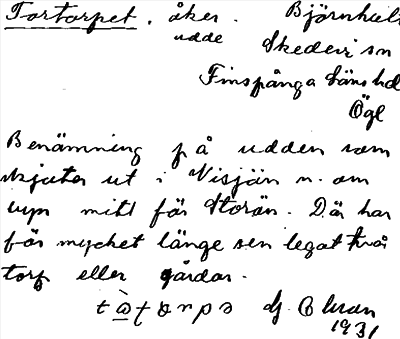 Tortorpet, åker. Björnhult
udde Skedevi sn
Finspånga läns hd
Ögl
Benämning på udden som
skjuter ut i Visjön n. om
upp mitt för Storön. Där har
för mycket länge sen legat två
torp eller gårdar.
1931